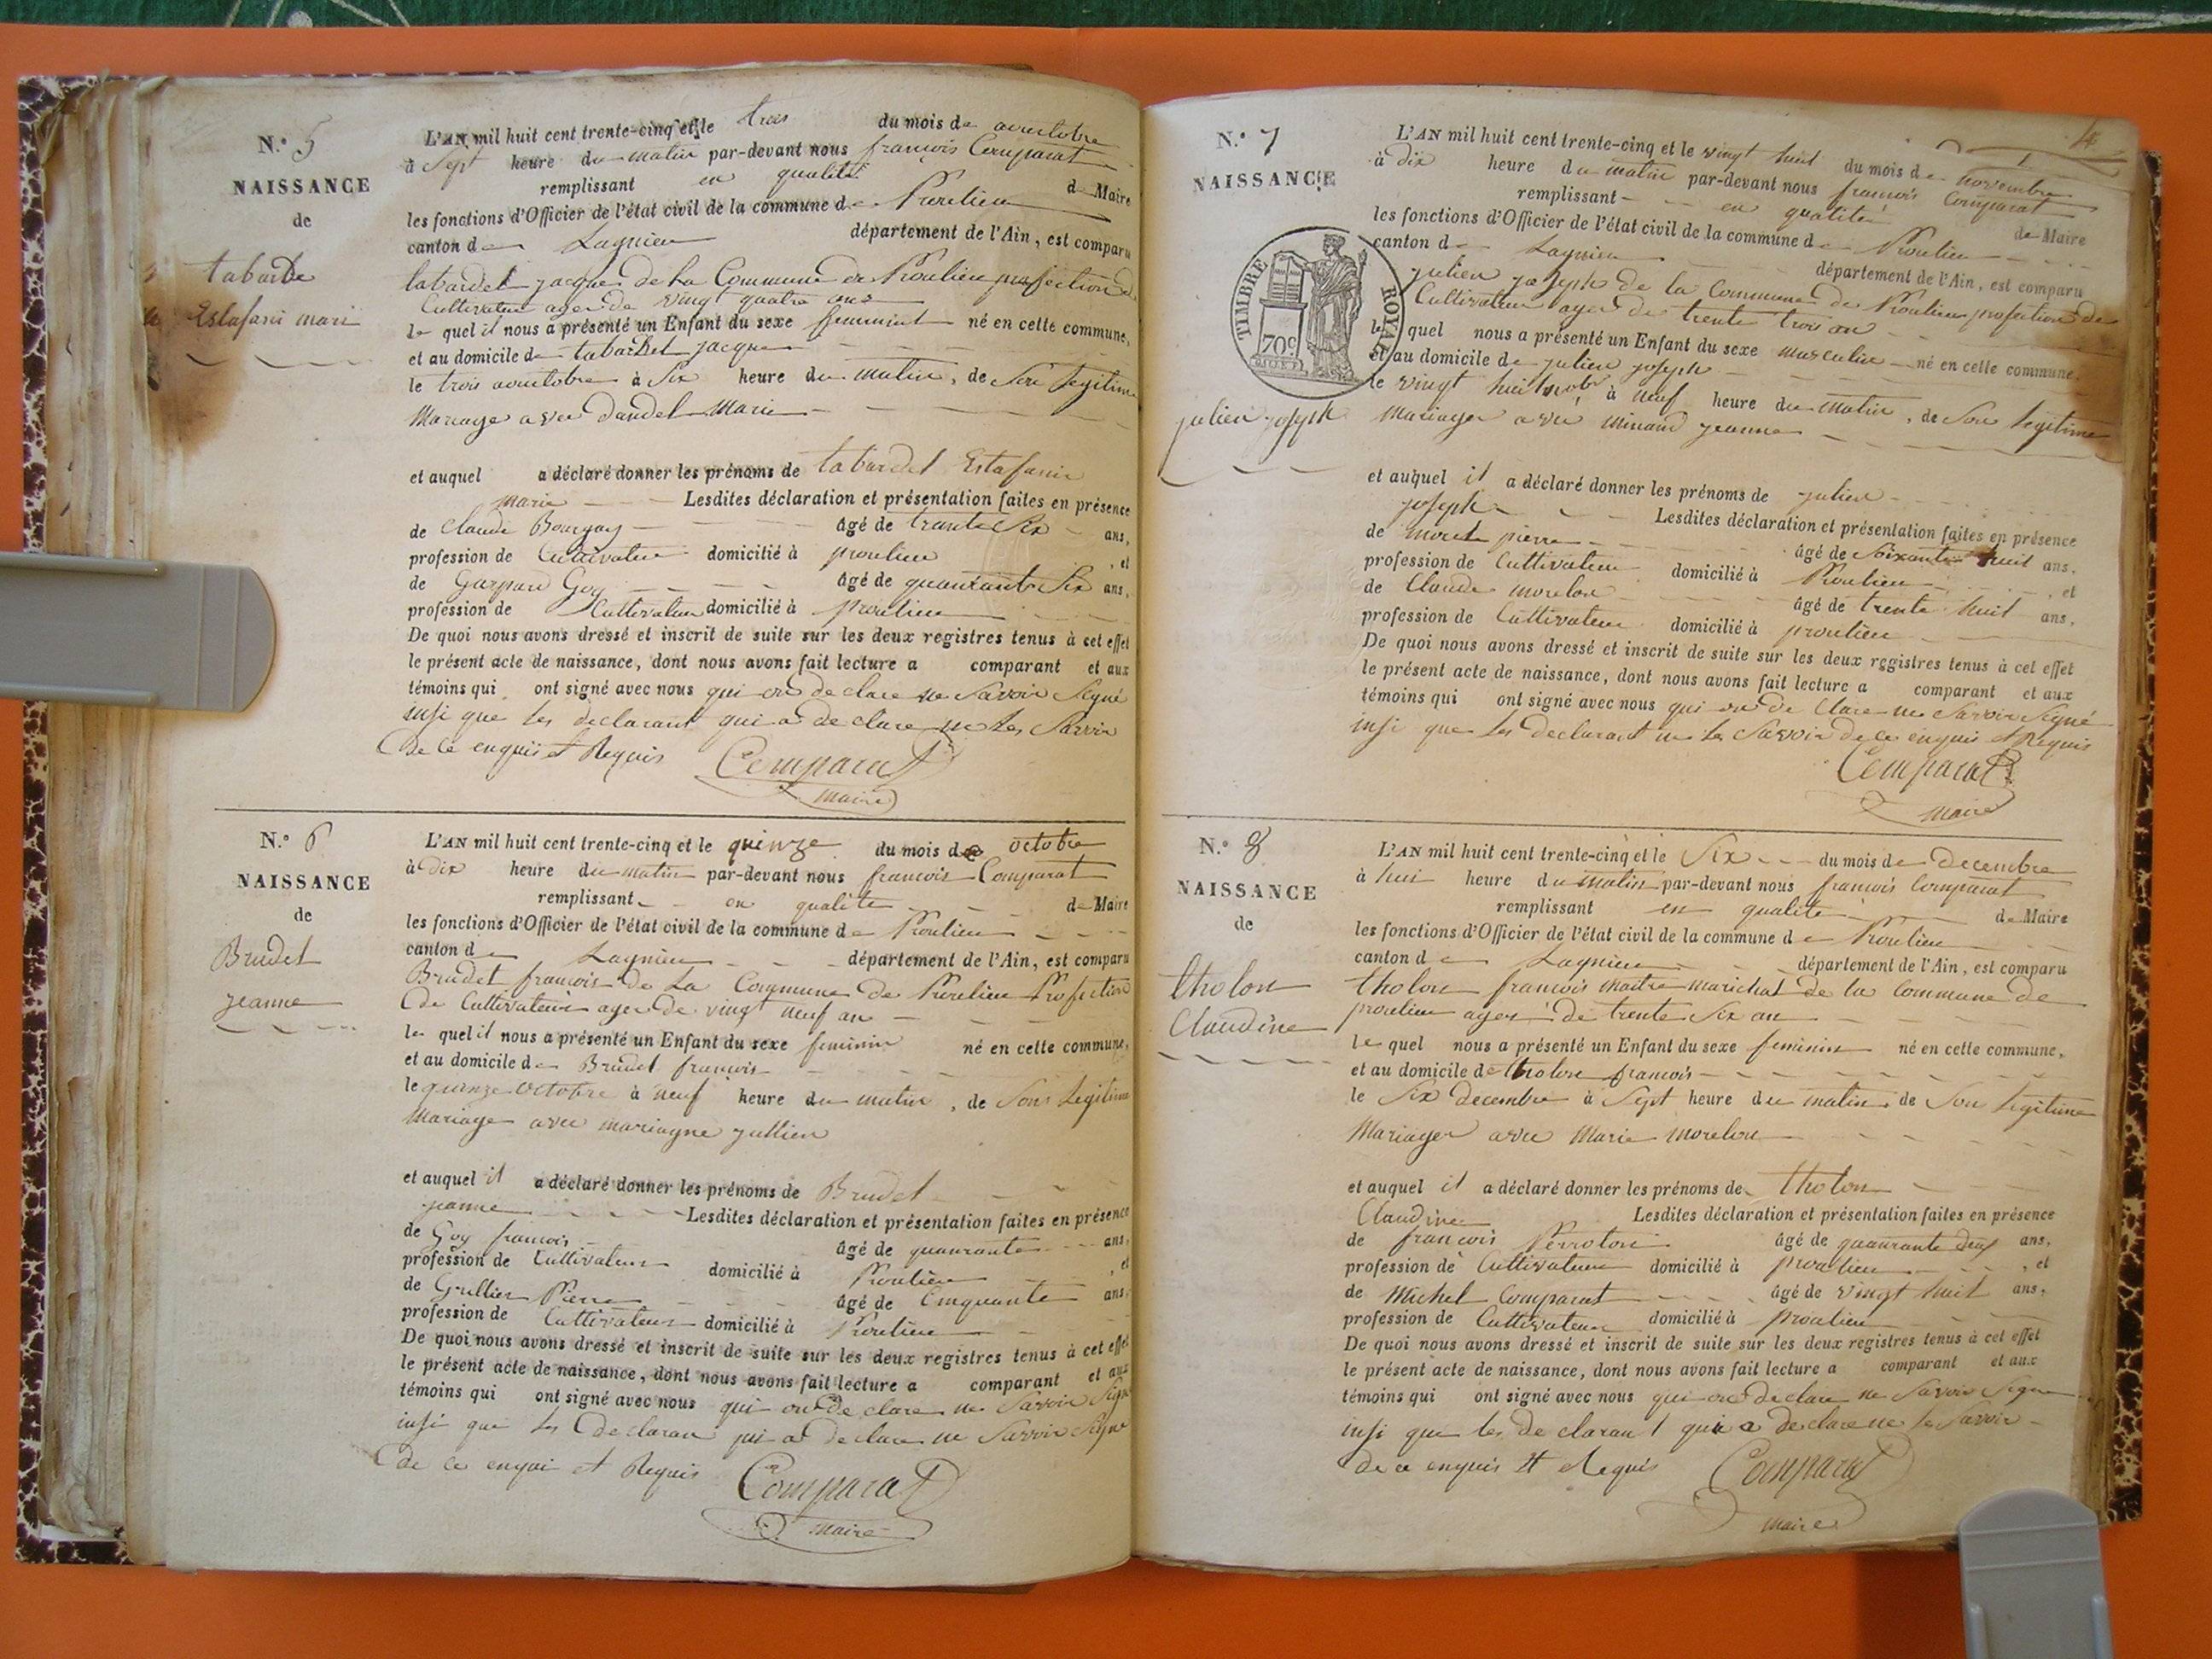 N.° 5
NAISSANCE
de
tabarde
Estafani mari
L'AN mil huit cent trente-cinq et le trois du mois de
à Sept heure du matin par-devant nous françois Comparat
remplissant en qualité de Maire
les fonctions d'Officier de l'état civil de la commune de Proulieu
canton de Lagnieu département de l'Ain, est comparu
tabardet jacque de la Commune de Proulieu profection de
Cultivateur ager de vingt quatre ans
le quel il nous a présenté un Enfant du sexe feminint né en cette commune,
et au domicile de tabardet jacque
le trois à Six heure du matin, de Son legitime
Mariage avec dandel Marie
et auquel a déclaré donner les prénoms de tabardet Estafanie
marie Lesdites déclaration et présentation faites en présence
de Claude Bourgay âgé de trante Six ans,
profession de Cultivateur domicilié à proulieu , et
de Gaspard Goy âgé de quanrante Six ans,
profession de Cultivateur domicilié à proulieu
De quoi nous avons dressé et inscrit de suite sur les deux registres tenus à cet effet
le présent acte de naissance, dont nous avons fait lecture a comparant et aux
témoins qui ont signé avec nous qui on de clare ne Savoir Signé
insi que les declarant qui a de clare ne les Savoir
de ce enquis et Requis Comparat
maire
N.° 6
NAISSANCE
de
Brudet
jeanne
L'AN mil huit cent trente-cinq et le quinze du mois de octobre
à dix heure du matin par-devant nous francois Comparat
remplissant en qualite de Maire
les fonctions d'Officier de l'état civil de la commune de Proulieu
canton de Lagnieu département de l'Ain, est comparu
Brudet francois de La Commune de Proulieu Profection
de Cultivateur ager de vingt neuf an
le quel il nous a présenté un Enfant du sexe feminin né en cette commune,
et au domicile de Brudet francois
le quinze octobre à neuf heure du matin, de Son Legitime
Mariage avec mariagne jullien
et auquel il a déclaré donner les prénoms de Brudet
jeanne Lesdites déclaration et présentation faites en présence
de Goy francois âgé de quanrante ans,
profession de Cultivateur domicilié à Proulieu , et
de Grullier Pierre âgé de Cinquante ans,
profession de Cultivateur domicilié à Proulieu
De quoi nous avons dressé et inscrit de suite sur les deux registres tenus à cet effet
le présent acte de naissance, dont nous avons fait lecture a comparant et aux
témoins qui ont signé avec nous qui on de clare ne Savoir Signe
insi que les declaran qui a de clare ne Savoir Signe
de ce enqui et Requis Comparat
maire
4
N.° 7
NAISSANCE
TIMBRE ROYAL
70 c
julien joseph
L'AN mil huit cent trente-cinq et le vingt huit du mois de novembre
à dix heure du matin par-devant nous francois Comparat
remplissant en qualité de Maire
les fonctions d'Officier de l'état civil de la commune de Proulieu
canton de Lagnieu département de l'Ain, est comparu
julien joseph de la Commune de Proulieu profection de
Cultivateur ager de trente trois an
le quel nous a présenté un Enfant du sexe masculin né en cette commune,
et au domicile de julien joseph
le vingt huit à neuf heure du matin, de Son legitime
Mariager avec minand jeanne
et auquel il a déclaré donner les prénoms de julien
joseph Lesdites déclaration et présentation faites en présence
de pierre âgé de Soixante huit ans,
profession de Cultivateur domicilié à Proulieu , et
de Claude morelon âgé de trente huit ans,
profession de Cultivateur domicilié à proulieu
De quoi nous avons dressé et inscrit de suite sur les deux registres tenus à cet effet
le présent acte de naissance, dont nous avons fait lecture a comparant et aux
témoins qui ont signé avec nous qui on de clare ne Savoir Signé
insi que les declarant ne les Savoir de ce enquis et Requis
Comparat
maire
N.° 8
NAISSANCE
de
tholon
Claudine
L'AN mil huit cent trente-cinq et le Six du mois de decembre
à hui heure du matin par-devant nous francois Comparat
remplissant en qualite de Maire
les fonctions d'Officier de l'état civil de la commune de Proulieu
canton de Lagnieu département de l'Ain, est comparu
tholon francois maitre marichal de la Commune de
proulieu ager de trente Six an
le quel nous a présenté un Enfant du sexe feminin né en cette commune,
et au domicile de tholon francois
le Six decembre à Sept heure du matin, de Son legitime
Mariager avec Marie morelon
et auquel il a déclaré donner les prénoms de tholon
Claudine Lesdites déclaration et présentation faites en présence
de francois Perroton âgé de quanrante deux ans,
profession de Cultivateur domicilié à proulieu , et
de Michel Comparat âgé de vingt huit ans,
profession de Cultivateur domicilié à proulieu
De quoi nous avons dressé et inscrit de suite sur les deux registres tenus à cet effet
le présent acte de naissance, dont nous avons fait lecture a comparant et aux
témoins qui ont signé avec nous qui on declare ne Savoir Signe
insi que les de claran t qui a declare ne le Savoir
de ce enquis et Requis Comparat
maire